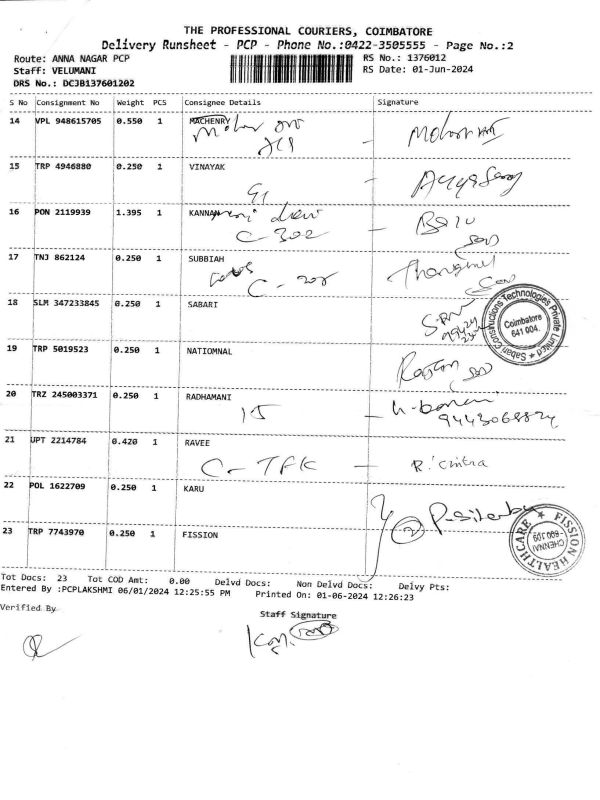 THE PROFESSIONAL COURIERS, COIMBATORE
Delivery Runsheet - PCP - Phone No.:0422-3505555 - Page No.:2
Route: ANNA NAGAR PCP
RS No.: 1376012
Staff: VELUMANI
RS Date: 01-Jun-2024
DRS No.: DCJB137601202
S No Consignment No Weight PCS Consignee Details Signature
14 VPL 948615705 0.550 1 MACHENRY
15 TRP 4946880 0.250 1 VINAYAK
G1
16 PON 2119939 1.395 1 KANNAN
C-302
17 TNJ 862124 0.250 1 SUBBIAH
C-208
18 SLM 347233845 0.250 1 SABARI
Saban Constructions Technologies Private Limited
Coimbatore
641 004.
19 TRP 5019523 0.250 1 NATIOMNAL
20 TRZ 245003371 0.250 1 RADHAMANI
15
21 UPT 2214784 0.420 1 RAVEE
C-TFK - R. Chitra
22 POL 1622709 0.250 1 KARU
23 TRP 7743970 0.250 1 FISSION
FISSION HEALTHCARE
CHENNAI
Tot Docs: 23 Tot COD Amt: 0.00 Delvd Docs: Non Delvd Docs: Delvy Pts:
Entered By :PCPLAKSHMI 06/01/2024 12:25:55 PM Printed On: 01-06-2024 12:26:23
Verified By
Staff Signature